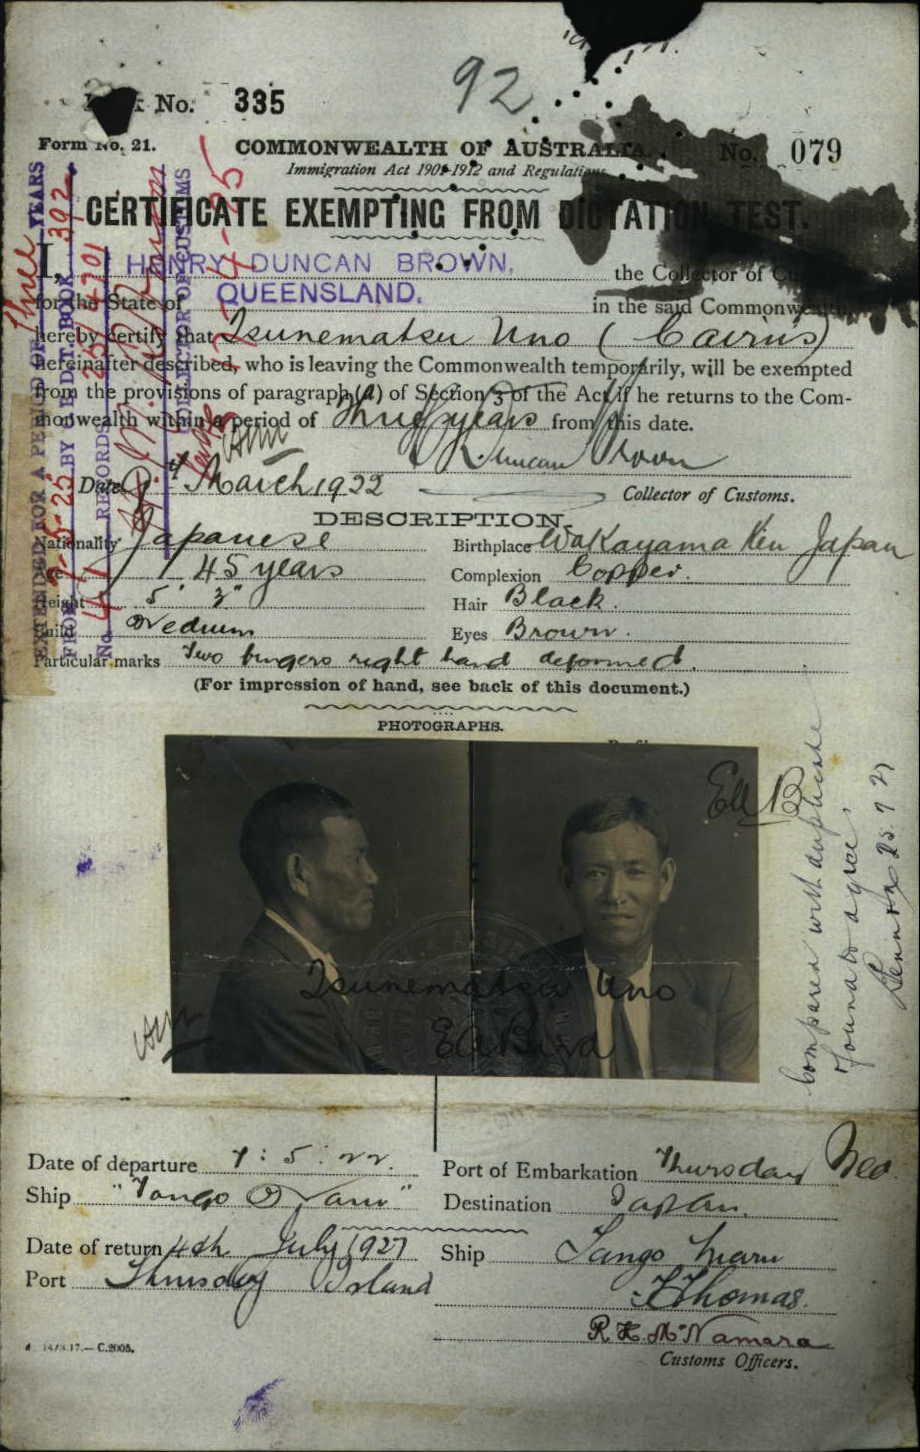 No. 335
92
Form No. 21.
COMMONWEALTH OF AUSTRALIA.
No. 079
Immigration Act 1901-1912 and Regulations
CERTIFICATE EXEMPTING FROM DICTATION TEST.
I, HENRY DUNCAN BROWN, the Collector of
for the State of QUEENSLAND. in the said Commonwealth
hereby certify that Tsunematsu Uno (Cairns)
hereinafter described, who is leaving the Commonwealth temporarily, will be exempted
from the provisions of paragraph (a) of Section 3 of the Act if he returns to the Com-
monwealth within a period of three years from this date.
Duncan Brown
Date March 1922
Collector of Customs.
EXTENDED FOR A PERIOD OF Three YEARS
COLLECTOR OF CUSTOMS
DESCRIPTION.
Nationality Japanese
Birthplace Wakayama Ken Japan
45 years
Complexion Copper.
Height 5' 3"
Hair Black.
Build Medium
Eyes Brown.
Particular marks Two fingers right hand deformed.
(For impression of hand, see back of this document.)
PHOTOGRAPHS.
Tsunematsu Uno
Compared with duplicate
found to agree.
Date of departure 7:5:22.
Port of Embarkation Thursday
Ship "Tango Maru"
Destination Japan.
Date of return 4th July 1927
Ship Tango Maru
Port Thursday Island
Thomas.
R. H. McNamara
Customs Officers.
C.2005.